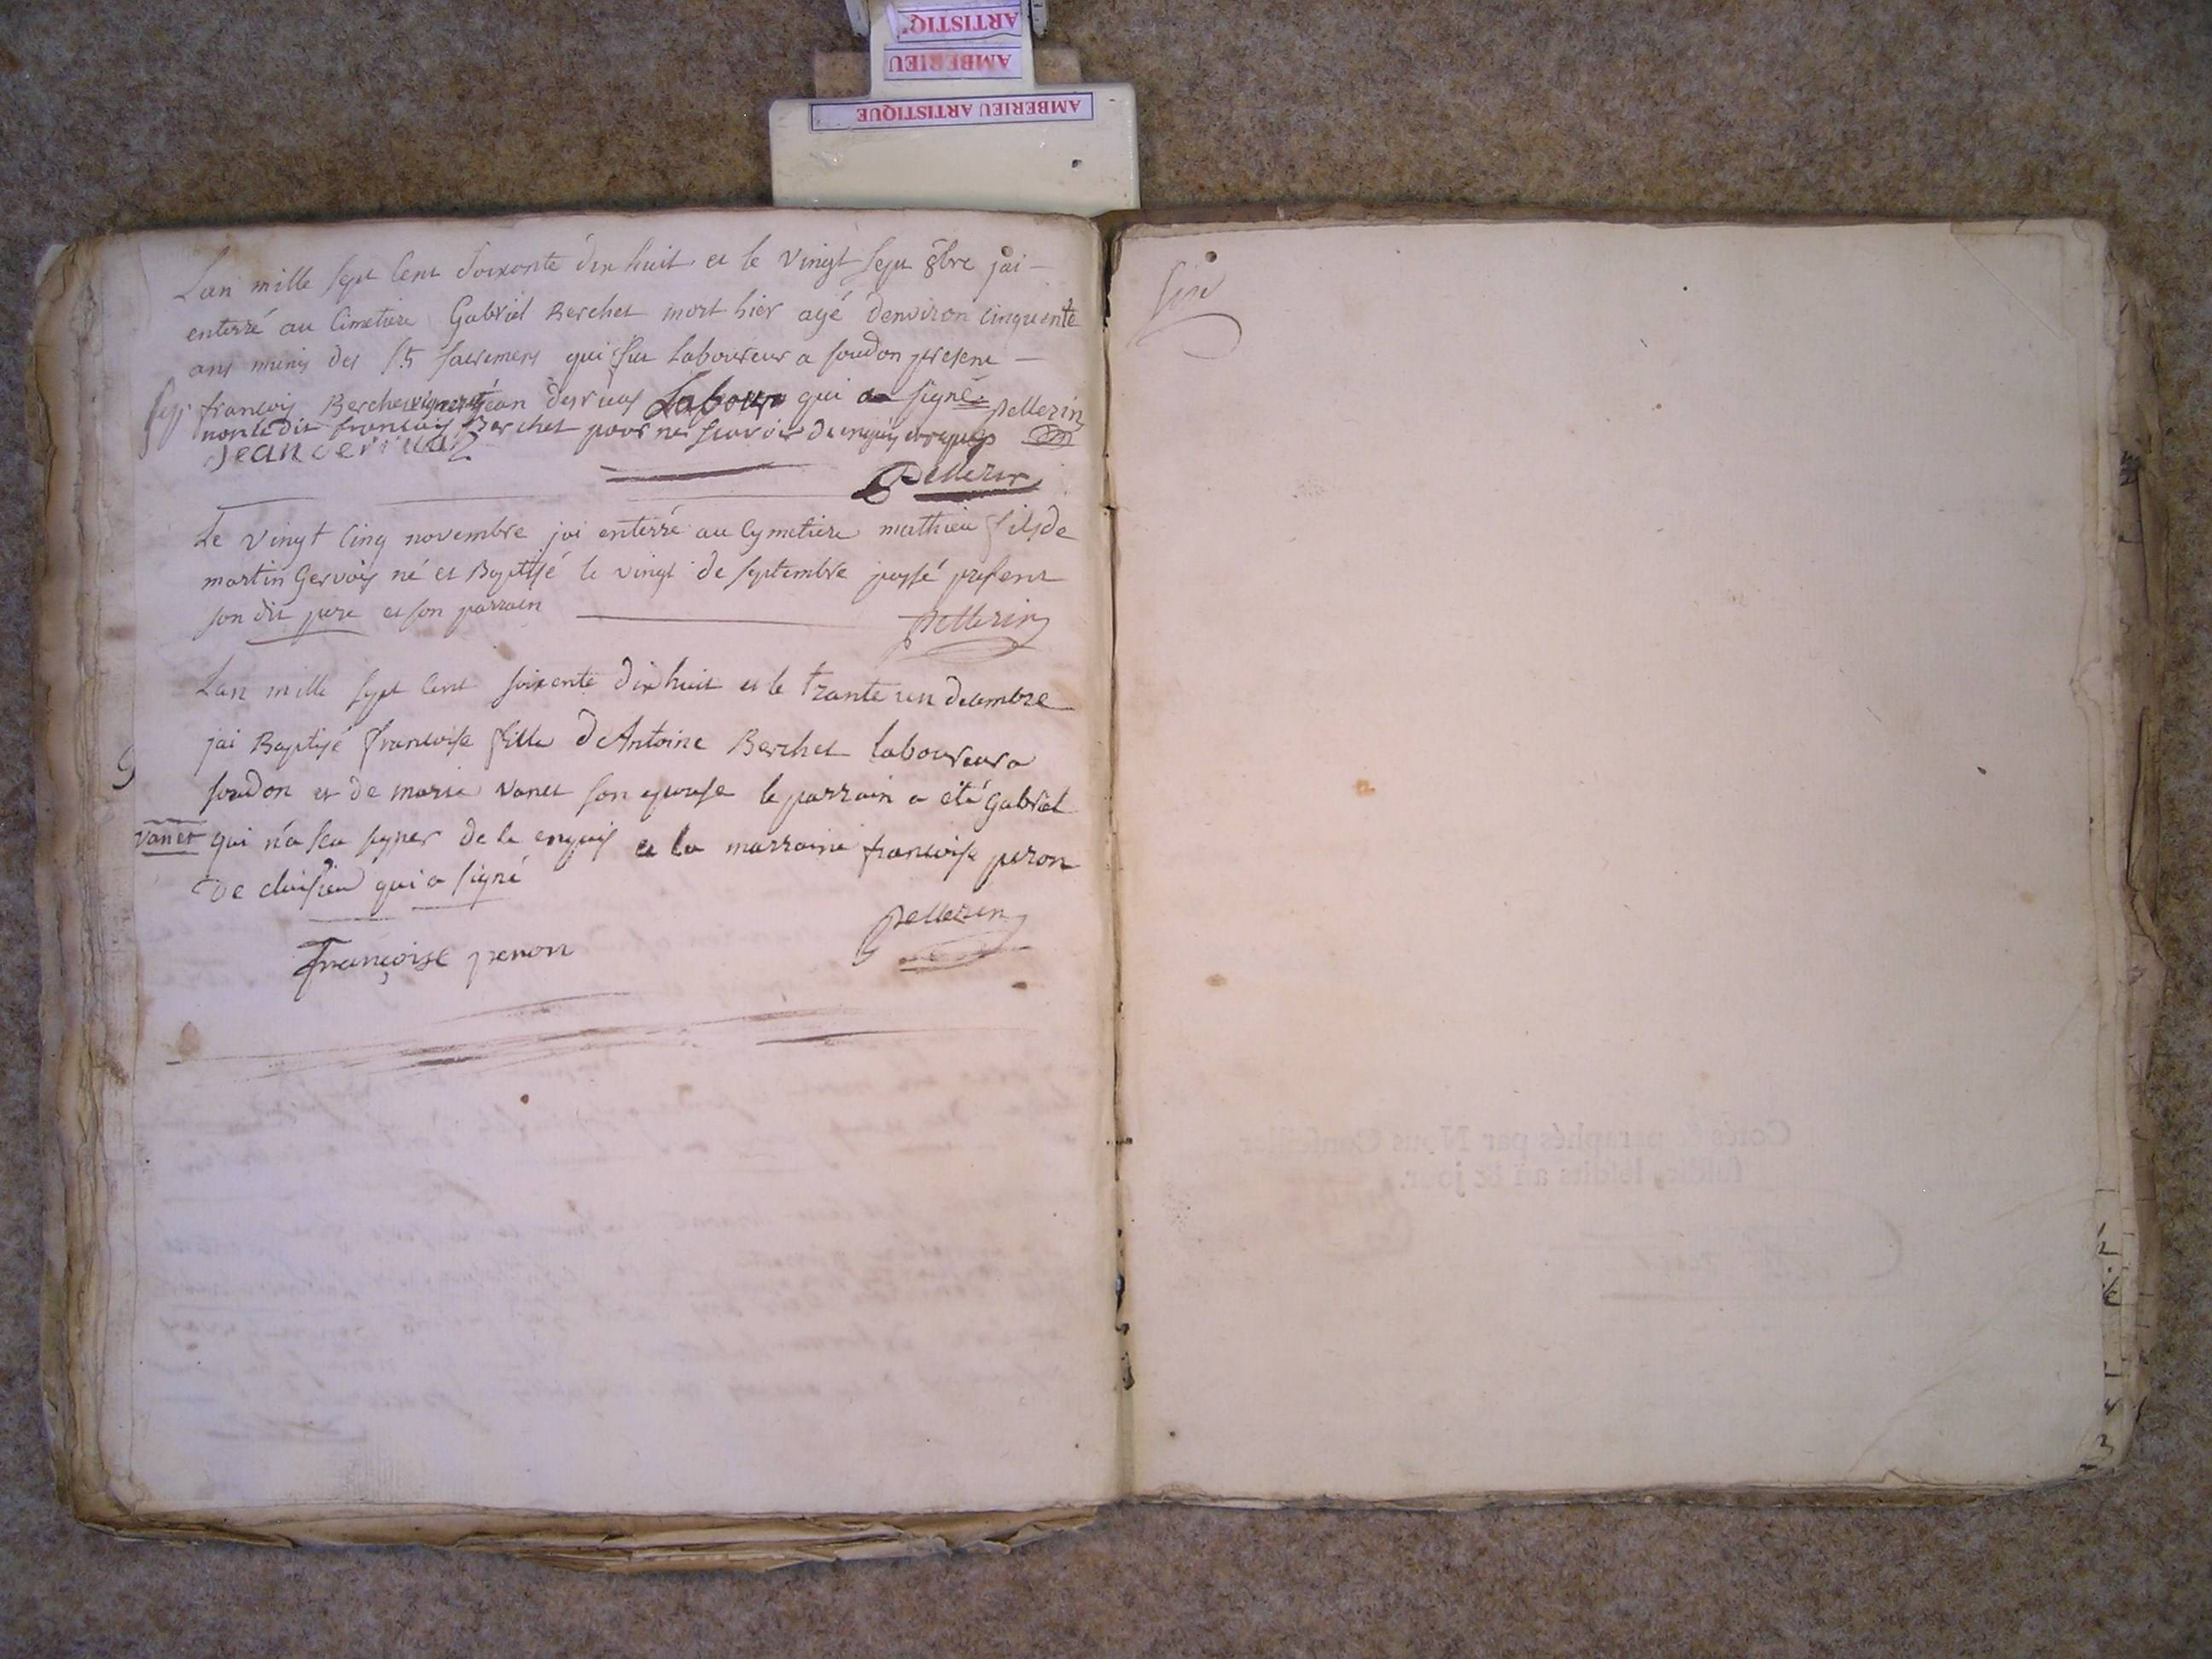 AMBERIEU ARTISTIQUE
AMBERIEU
ARTISTIQ
Lan mille sept Cent Soixante dix huit et le vingt sept 8bre jai
enterré au Cimetiere Gabriel Berchet mort hier agé denviron cinquente
ans munis des Sts sacremens qui fut Laboureur a soudon present
francois Berchet vigneron jean deriuas Labour qui a signé pellerin
non le dit francois Berchet pour ne scavoir de enquis et requis
Jean deriuaz
Pellerin
Le vingt cinq novembre jai enterré au Cymetiere mathieu fils de
martin Gervais né et Baptisé le vingt de septembre passé present
son dit pere et son parrain
pellerin
Lan mille sept Cent soixente dix huit et le trante un decembre
jai Baptisé francoise fille dAntoine Berchet laboureur a
soudon et de marie vanet son epouse le parrain a été gabriel
vanet qui na scu signer de le enquis et la marraine francoise peron
de cleisieu qui a signé
pelleren
Françoise peron
fin
Cotés & paraphés par Nous Conseiller
susdit, lesdits an & jour.